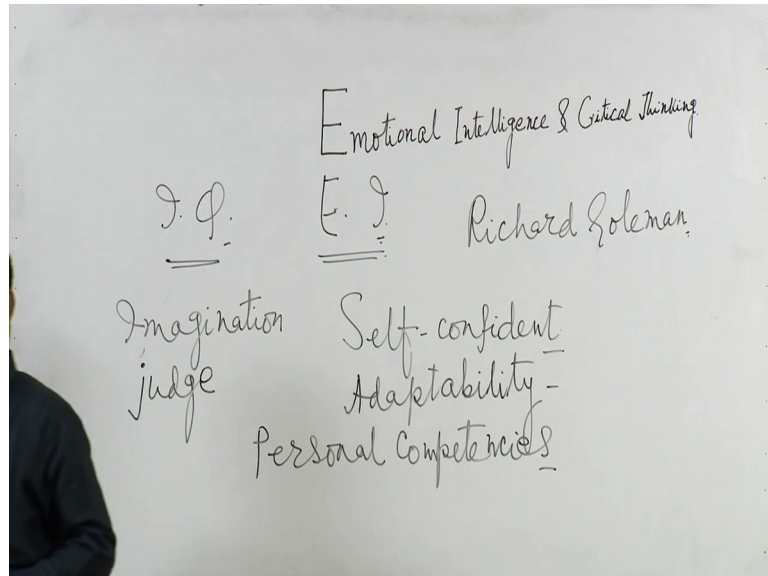 Emotional Intelligence & Critical Thinking
I.Q. E.I. Richard Goleman.
Imagination Self-confident
judge Adaptability -
Personal Competencies